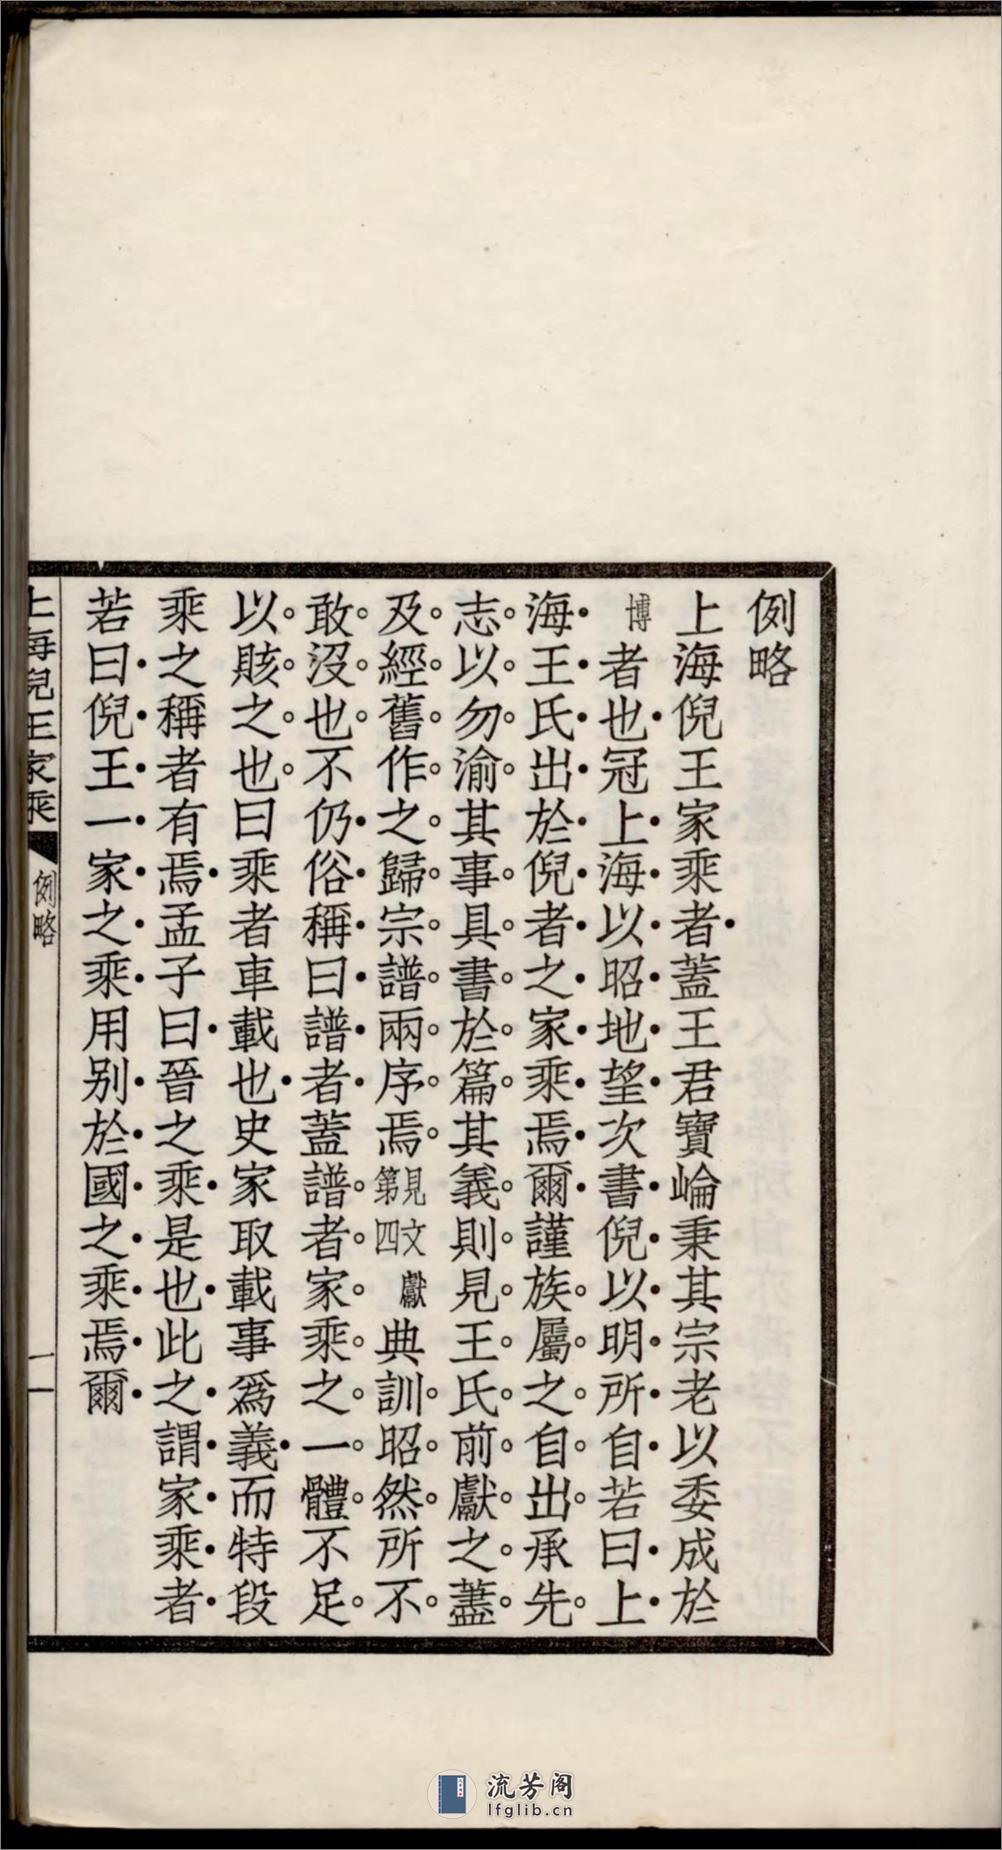 例略
上海倪王家乘者蓋王君寶崘秉其宗老以委成於
博者也冠上海以昭地望次書倪以明所自若曰上
海王氏出於倪者之家乘焉爾謹族屬之自出承先
志以勿渝其事具書於篇其義則見王氏前獻之藎
及經舊作之歸宗譜兩序焉見文獻第四典訓昭然所不
敢沒也不仍俗稱曰譜者蓋譜者家乘之一體不足
以賅之也曰乘者車載也史家取載事爲義而特段
乘之稱者有焉孟子曰晉之乘是也此之謂家乘者
若曰倪王一家之乘用别於國之乘焉爾
上海倪王家乘
例略
一
流芳阁
lfglib.cn